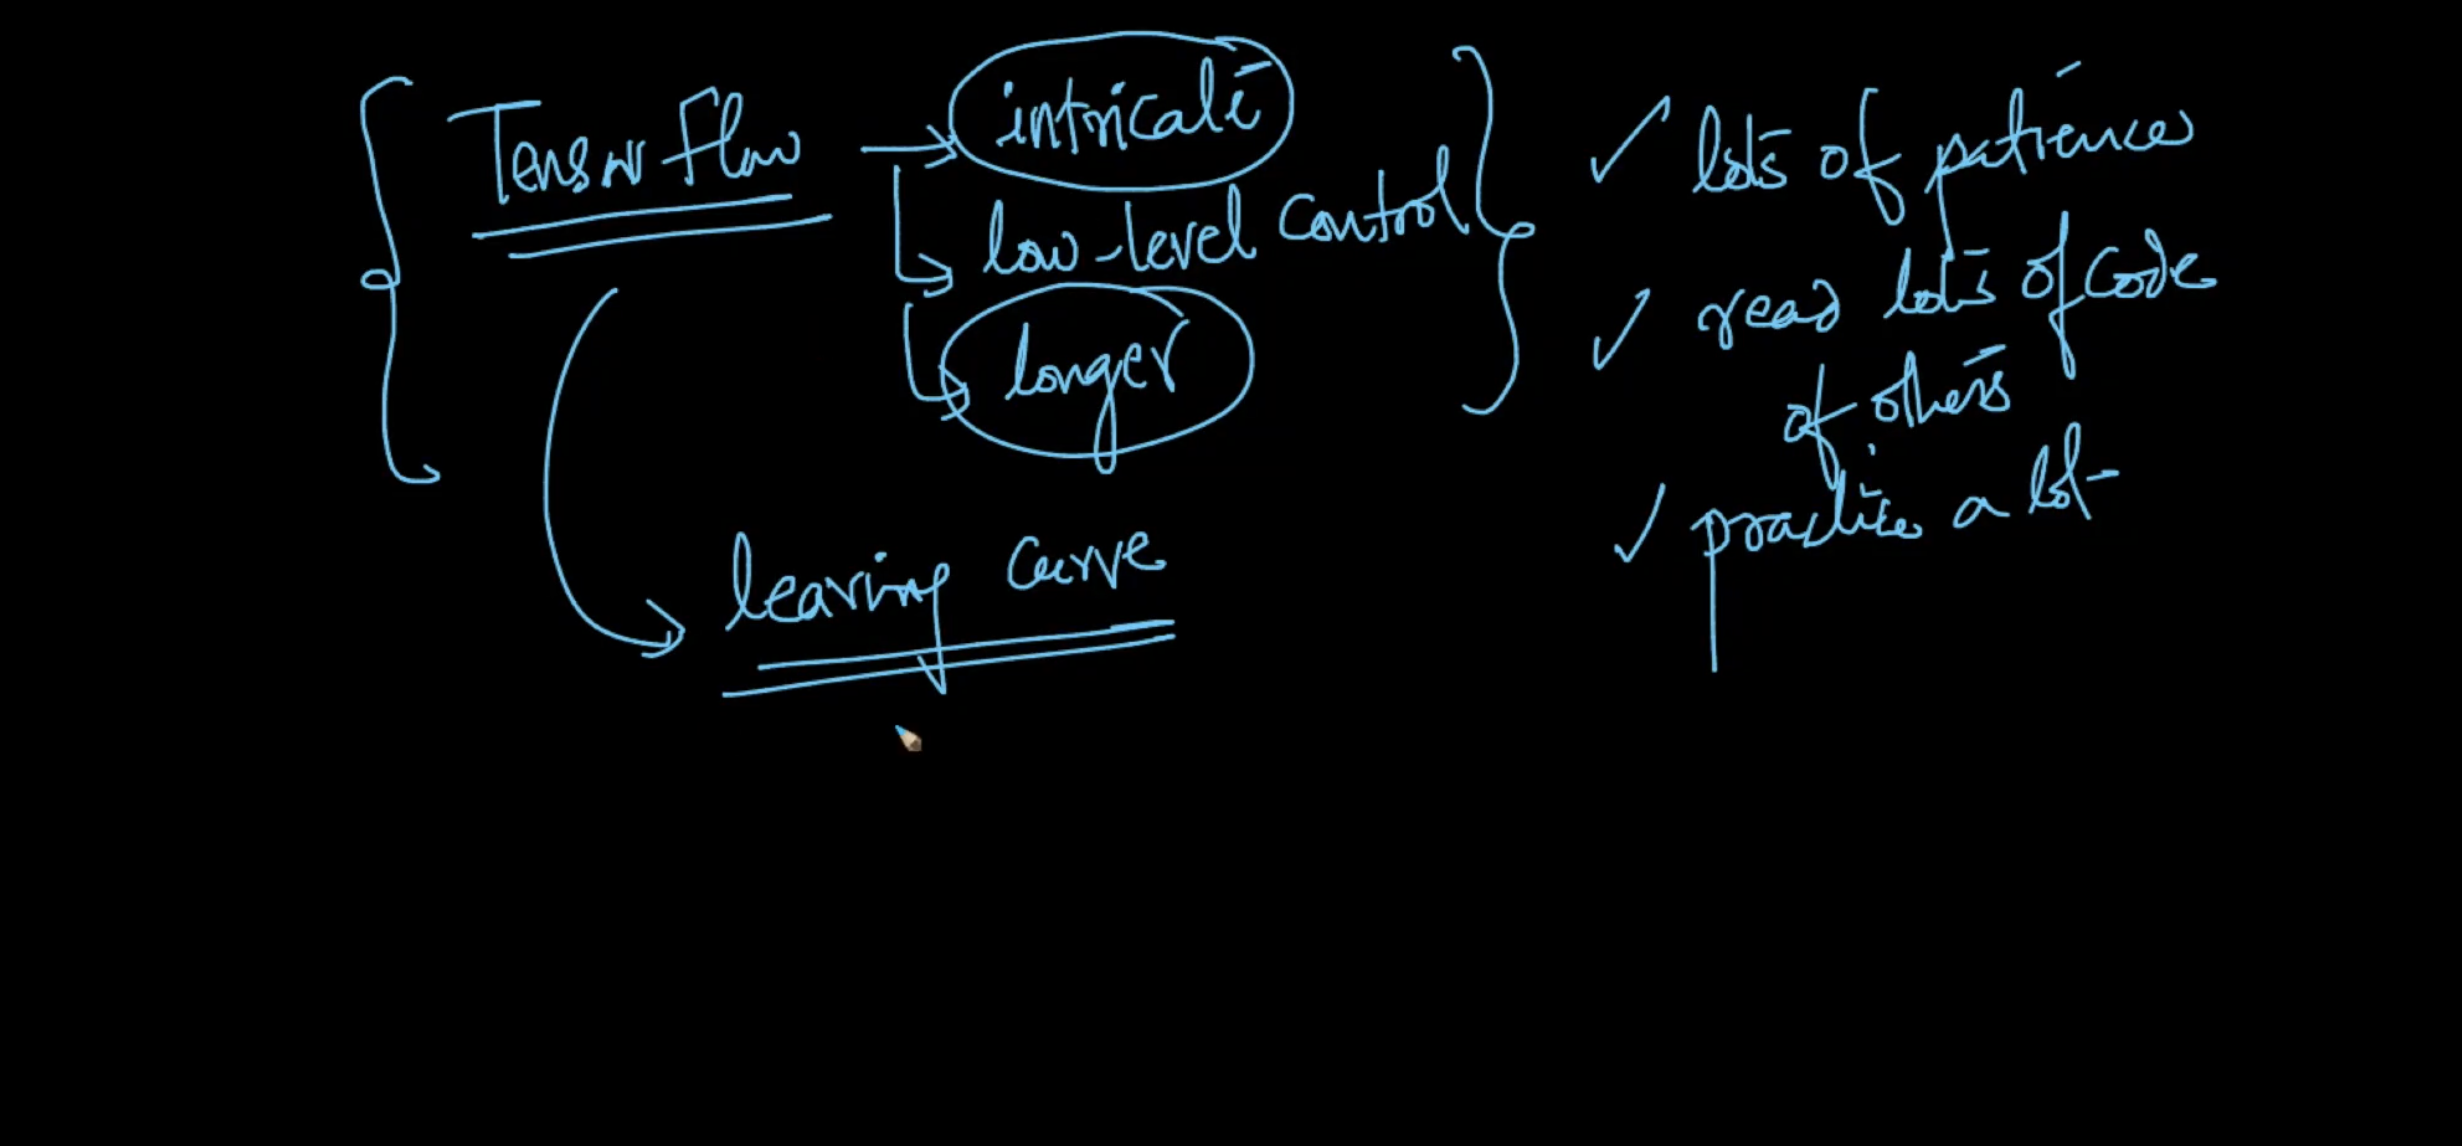 TensorFlow → intricate
low-level control
longer
learning curve
✓ lots of patience
✓ read lots of code
of others
✓ practice a lot